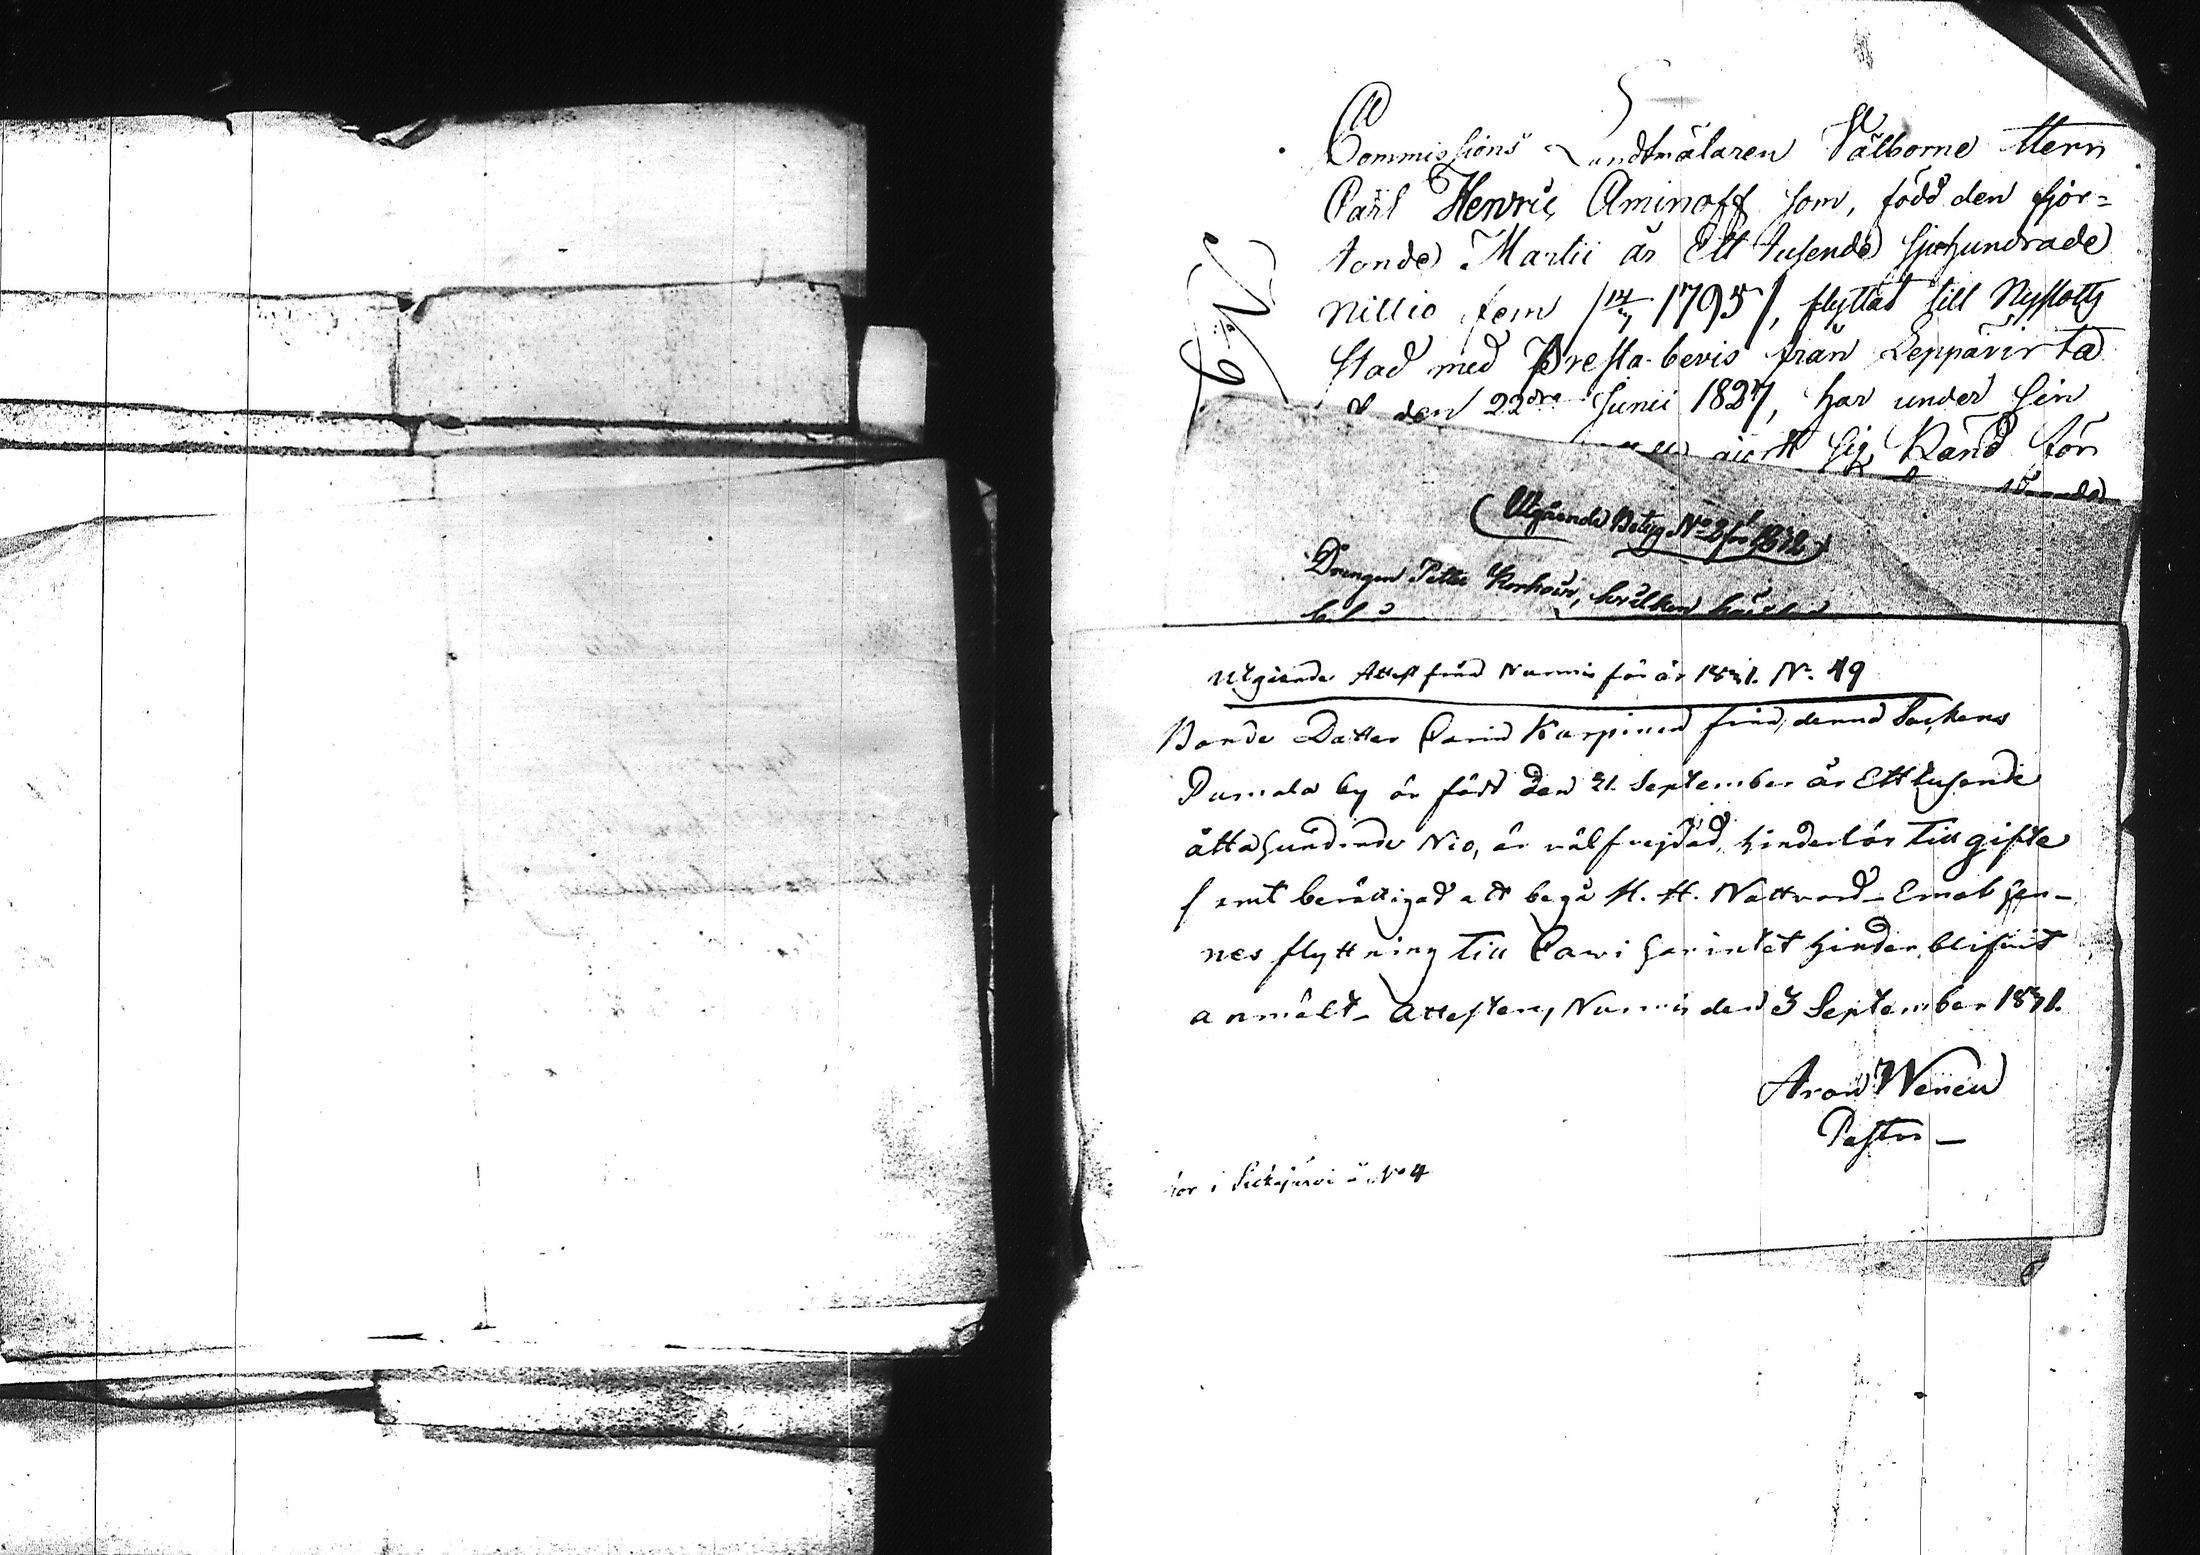 Commissions Landtmätaren Välborne Herr
Carl Henric Aminoff som, född den fjor=
tonde Martii år Ett tusende sjuhundrade
Nittio fem 1795/, flyttat till Nyslotts
stad med Presta-bevis från Leppävirta
den 22dra Junii 1827, har under sin
gjort sig känd för
(Utgående Betyg No 2 för 1832)
Drengen Petter Korhoin, hvilken
Utgående Attest från Nurmis för år 1831. No. 49
Bonde Dotter Carin Karpinen från denna Sockens
Pumala by är född den 21. September år Ett tusende
åtta hundrade Nio, är välfrejdad, hinderlös till gifte
samt berättigad att begå H. H. Nattvard – Emot hen-
nes flyttning till Pawi har intet hinder blifvit
anmält – Attesterar, Nurmis den 3 September 1831.
Aron Wenell
Pastor –
i No 4